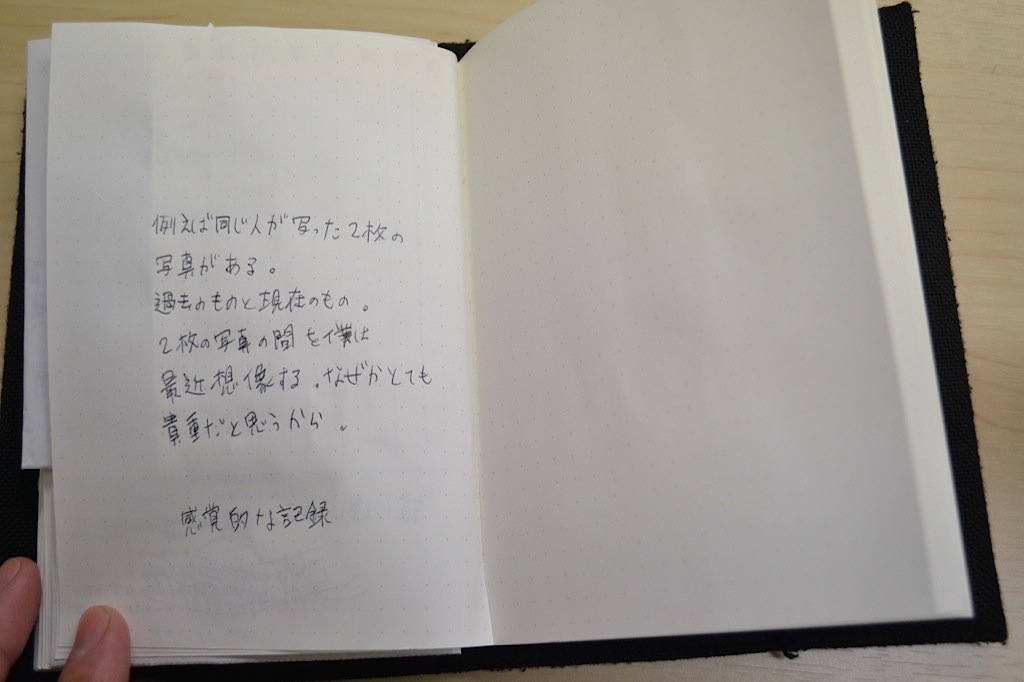 例えば同じ人が写った2枚の
写真がある。
過去のものと現在のもの。
2枚の写真の間を僕は
最近想像する。なぜかとても
貴重だと思うから。
感覚的な記録